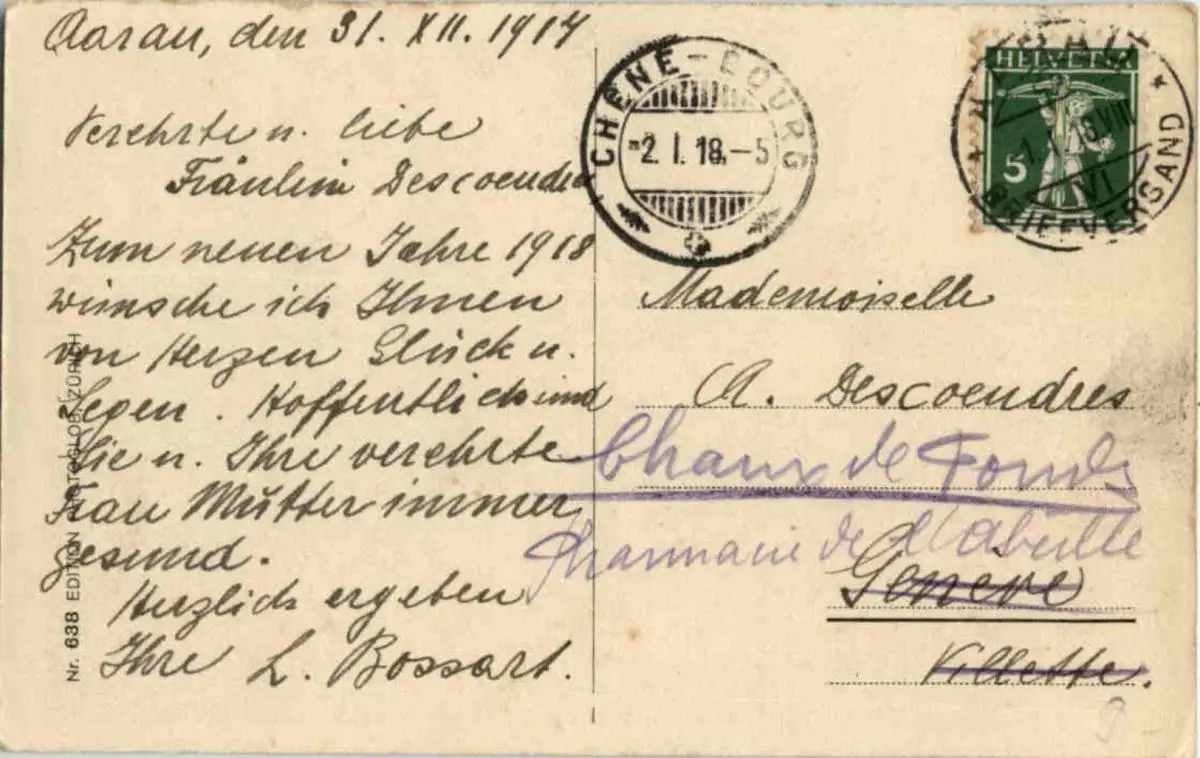 Aarau, den 31. XII. 1917
Verehrte u. liebe
Fräulein Descoendres
Zum neuen Jahre 1918
wünsche ich Ihnen
von Herzen Glück u.
Segen. Hoffentlich sind
Sie u. Ihre verehrte
Frau Mutter immer
gesund.
Herzlich ergeben
Ihre L. Bossart.
Nr. 638 EDITION PHOTOGLOB, ZÜRICH
CHÊNE-BOURG
-2.I.18.-5
HELVETIA
5
AARAU
1.I.18.VIII
VI
BRIEFVERSAND
Mademoiselle
A. Descoendres
Chaux de Fonds
Pharmacie de l'abeille
Genève
Villette.